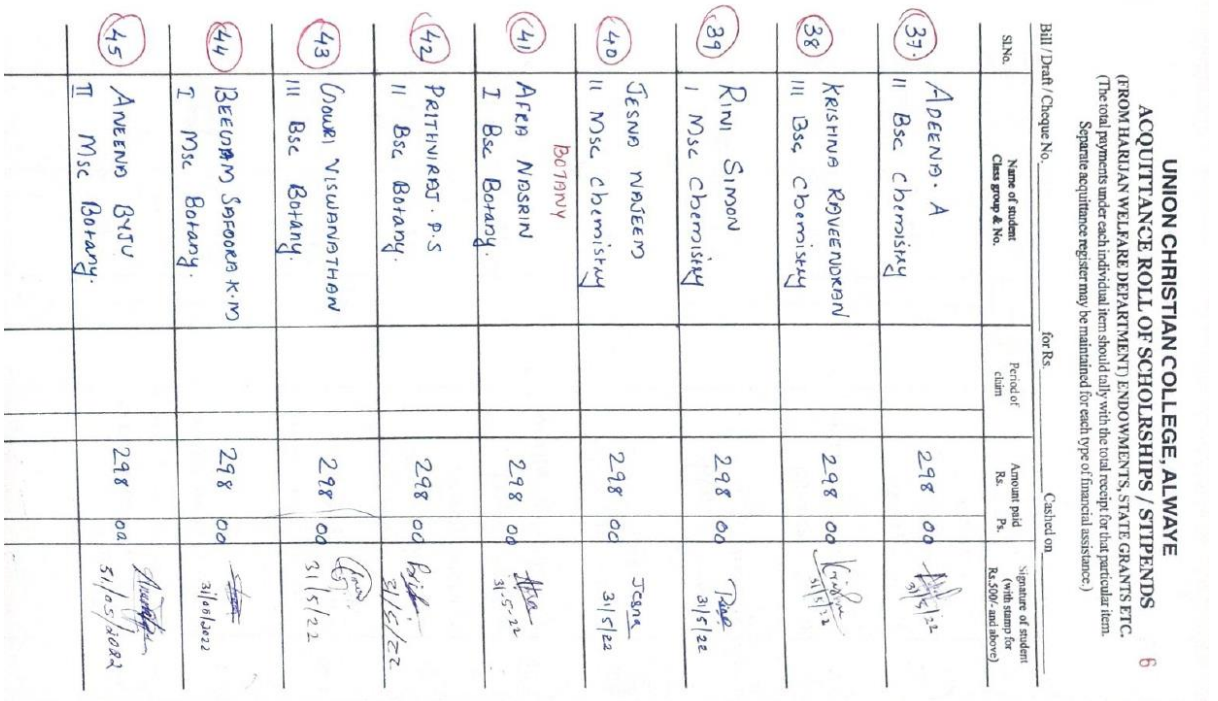 UNION CHRISTIAN COLLEGE, ALWAYE
ACQUITTANCE ROLL OF SCHOLRSHIPS / STIPENDS 6
(FROM HARIJAN WELFARE DEPARTMENT) ENDOWMENTS, STATE GRANTS ETC.
(The total payments under each individual item should tally with the total receipt for that particular item.
Separate acquittance register may be maintained for each type of financial assistance.)
Bill / Draft / Cheque No. for Rs. Cashed on
Sl.No. Name of student Class group & No. Period of claim Amount paid Rs. Ps. Signature of student (with stamp for Rs.500/- and above)
37. ADEENA. A 298 00
II Bsc Chemistry 31/5/22
38 KRISHNA RAVEENDRAN 298 00 Krishna
III Bsc Chemistry 31/5/22
39 RINI SIMON 298 00
I Msc Chemistry 31/5/22
40 JESNA NAJEEM 298 00 Jesna
II Msc Chemistry 31/5/22
BOTANY
41 AFRA NASRIN 298 00
I Bsc Botany. 31-5-22
42 PRITHVIRAJ. P.S 298 00
II Bsc Botany. 31/5/22
43 GOWRI VISWANATHAN 298 00
III Bsc Botany. 31/5/22
44 BEEVAM SAFOORA K.M 298 00
I Msc Botany. 31/05/2022
45 ANEENA BYJU 298 00
II Msc Botany. 31/05/2022